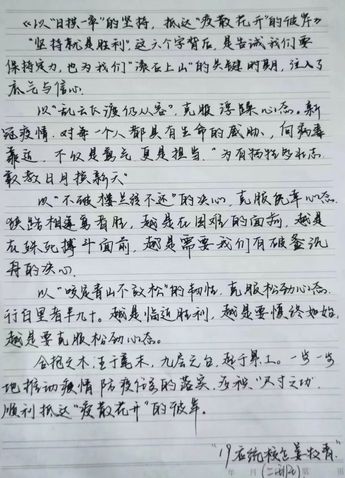 《以"日拱一卒"的坚持,抵达"疫散花开"的彼岸》
"坚持就是胜利"这六个字背后,是告诫我们要
保持定力,也为我们"滚石上山"的关键时期,注入了
底气与信心。
以"乱云飞渡仍从容",克服浮躁心态。新
冠疫情,对每一个人都是有生命的威胁,向病毒
靠近,不仅是勇气更是担当。"为有牺牲多壮志,
敢教日月换新天"
以"不破楼兰终不还"的决心,克服疲率心态。
狭路相逢勇者胜,越是在困难的面前,越是
在殊死搏斗面前,越是需要我们有破釜沉
舟的决心。
以"咬定青山不放松"的韧性,克服松劲心态。
行百里者半九十。越是临近胜利,越是要慎终如始,
越是要克服松劲心态。
合抱之木,生于毫末,九层之台,起于累土。一步一步
地推动疫情防疫任务的落实,在被"尺寸之功"
顺利抵达"疫散花开"的彼岸。
"19应统